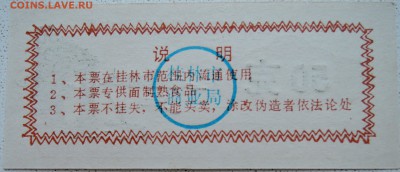 COINS.LAVE.RU
说 明
1、本票在桂林市范围内流通使用
2、本票专供面制熟食品
3、本票不挂失、不能买卖，涂改伪造者依法论处
桂林市
局